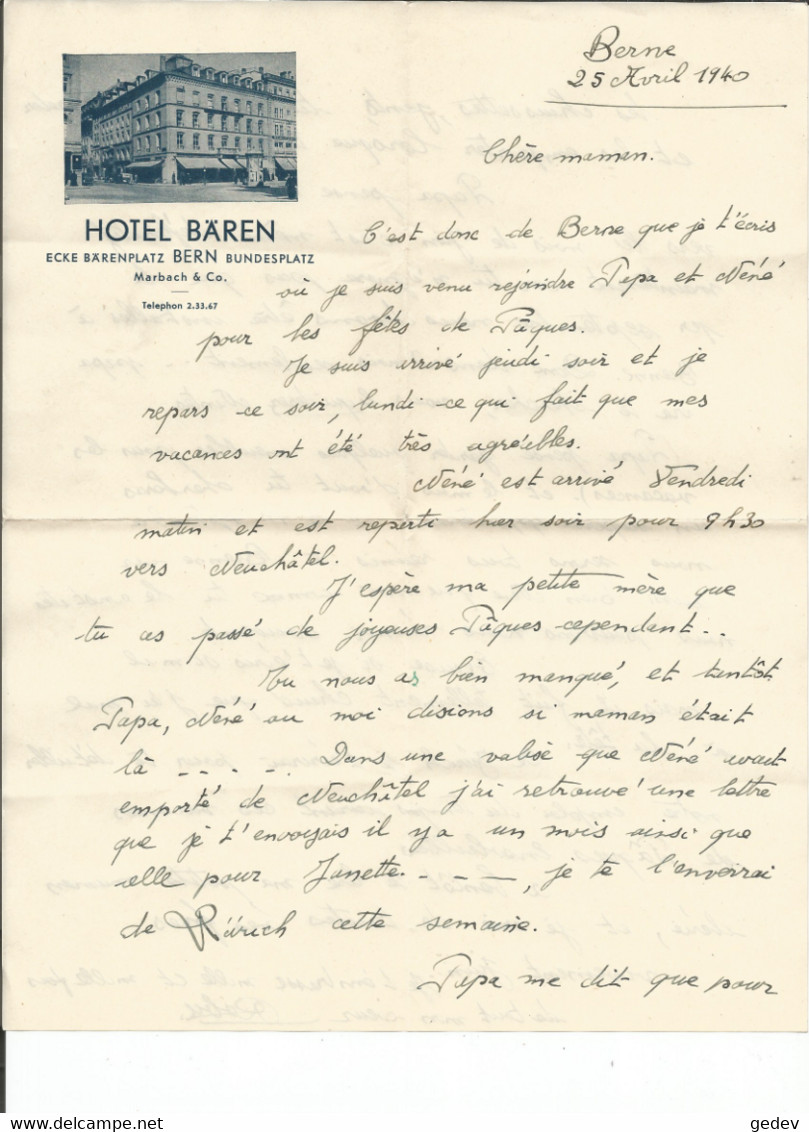 Berne
25 Avril 1940
HOTEL BÄREN
ECKE BÄRENPLATZ BERN BUNDESPLATZ
Marbach & Co.
Telephon 2.33.67
Chère maman.
C'est donc de Berne que je t'écris
où je suis venu rejoindre Papa et Néné
pour les fêtes de Pâques.
Je suis arrivé jeudi soir et je
repars ce soir, lundi ce qui fait que mes
vacances ont été très agréables.
Néné est arrivé Vendredi
matin et est reparti hier soir pour 9h30
vers Neuchâtel.
J'espère ma petite mère que
tu as passé de joyeuses Pâques cependant..
Tu nous as bien manqué, et tantôt
Papa, Néné ou moi disions si maman était
là - - - -. Dans une valise que Néné avait
emporté de Neuchâtel j'ai retrouvé une lettre
que je t'envoyais il y a un mois ainsi que
elle pour Janette. - - - -, je te l'enverrai
de Zürich cette semaine.
Papa me dit que pour
gedev